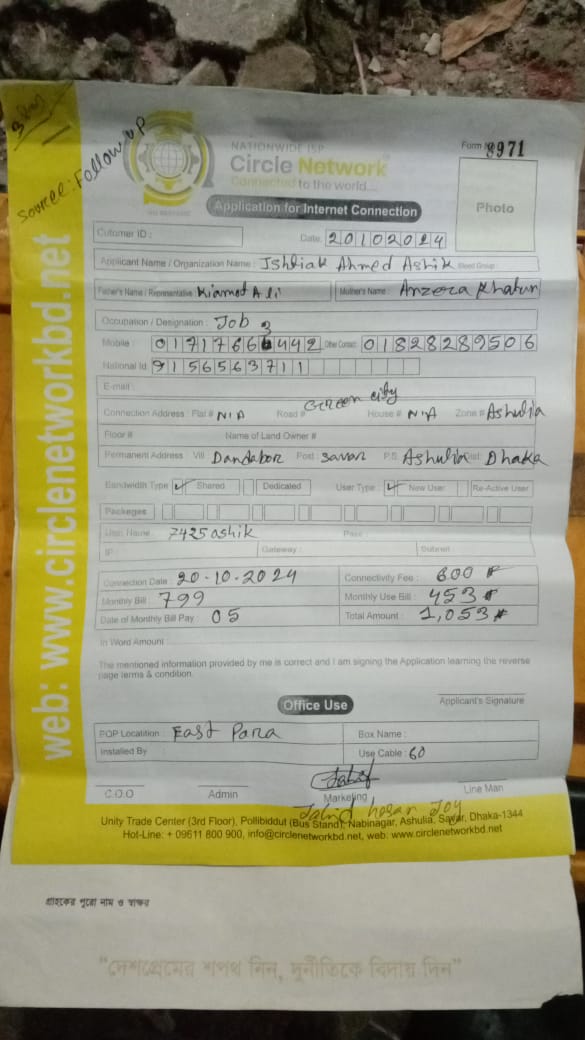 3 day
Source: Follow up
NATIONWIDE ISP
Circle Network
Connected to the world...
Form # 8971
Application for Internet Connection
Photo
Cutomer ID :
Date: 20102024
Applicant Name / Organization Name : Ishtiak Ahmed Ashik Blood Group :
Father's Name / Representative : Kiamot Ali Mother's Name : Anzera Khatun
Occupation / Designation : Job
Mobile : 01717663442 Other Contact : 01828289506
National Id 9156563711
E-mail :
Connection Address : Flat # N/A Road # Green city House # N/A Zone # Ashulia
Floor # Name of Land Owner #
Permanent Address : Vill: Dandabor Post: Savar P.S: Ashulia Dist: Dhaka
Bandwidth Type Shared Dedicated User Type : New User Re-Active User
Packages
User Name : 7425ashik Pass :
IP : Gateway : Subnet :
Connection Date : 20-10-2024 Connectivity Fee : 600
Monthly Bill : 799 Monthly Use Bill : 453
Date of Monthly Bill Pay : 05 Total Amount : 1,053
In Word Amount :
The mentioned information provided by me is correct and I am signing the Application learning the reverse
page terms & condition.
Applicant's Signature
Office Use
POP Localtion : East Para Box Name :
Installed By Use Cable : 60
C.O.O Admin Marketing Line Man
Jahid hasan Joy
Unity Trade Center (3rd Floor), Pollibiddut (Bus Stand), Nabinagar, Ashulia, Savar, Dhaka-1344
Hot-Line: + 09611 800 900, info@circlenetworkbd.net, web: www.circlenetworkbd.net
web: www.circlenetworkbd.net
গ্রাহকের পুরো নাম ও স্বাক্ষর
"দেশপ্রেমের শপথ নিন, দুর্নীতিকে বিদায় দিন"